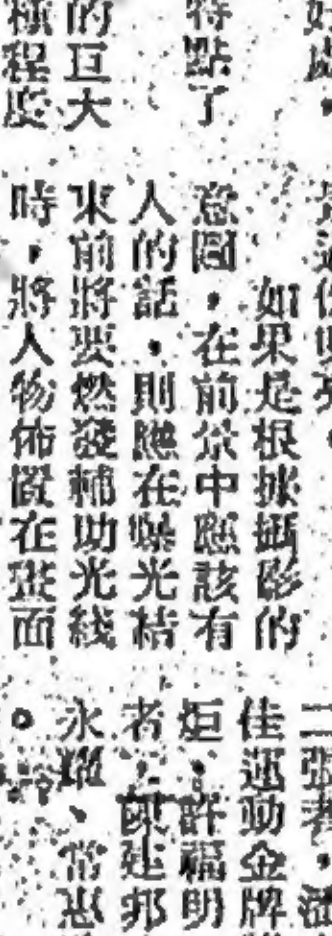 特點了
的巨大
極程度
如果是根據攝影的
意圖,在前景中應該有
人的話,則應在曝光桔
束前將要燃發輔助光綫
時,將人物佈置在畫面
佳運動金牌
炬:許福明
者:陳建邦
永耀、常惠
。